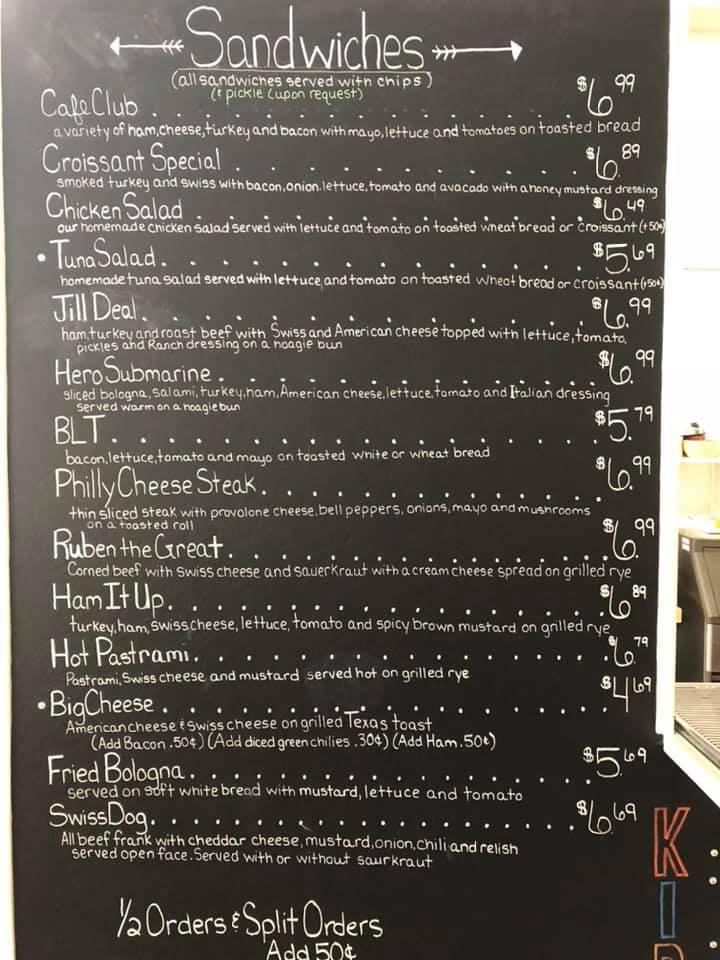 Sandwiches
(all sandwiches served with chips)
(& pickle (upon request)
Cafe Club . . . . . . . . . . . . $6.99
a variety of ham, cheese, turkey and bacon with mayo, lettuce and tomatoes on toasted bread
Croissant Special . . . . . . . . . . $6.89
smoked turkey and swiss with bacon, onion, lettuce, tomato and avacado with a honey mustard dressing
Chicken Salad . . . . . . . . . . . . $6.49
our homemade chicken salad served with lettuce and tomato on toasted wheat bread or croissant (+50¢)
• Tuna Salad . . . . . . . . . . . . $5.69
homemade tuna salad served with lettuce, and tomato on toasted wheat bread or croissant (+50¢)
Jill Deal . . . . . . . . . . . . $6.99
ham, turkey and roast beef with Swiss and American cheese topped with lettuce, tomato,
pickles and Ranch dressing on a hoagie bun
Hero Submarine . . . . . . . . . . . . $6.99
sliced bologna, salami, turkey, ham, American cheese, lettuce, tomato and Italian dressing
served warm on a hoagie bun
BLT . . . . . . . . . . . . $5.79
bacon, lettuce, tomato and mayo on toasted white or wheat bread
Philly Cheese Steak . . . . . . . . . . . . $6.99
thin sliced steak with provolone cheese, bell peppers, onions, mayo and mushrooms
on a toasted roll
Ruben the Great . . . . . . . . . . . . $6.99
Corned beef with swiss cheese and sauerkraut with a cream cheese spread on grilled rye
Ham It Up . . . . . . . . . . . . $6.89
turkey, ham, swiss cheese, lettuce, tomato and spicy brown mustard on grilled rye
Hot Pastrami . . . . . . . . . . . . $6.79
Pastrami, Swiss cheese and mustard served hot on grilled rye
• Big Cheese . . . . . . . . . . . . $4.69
American cheese & swiss cheese on grilled Texas toast
(Add Bacon .50¢) (Add diced green chilies .30¢) (Add Ham .50¢)
Fried Bologna . . . . . . . . . . . . $5.69
served on soft white bread with mustard, lettuce and tomato
Swiss Dog . . . . . . . . . . . . $6.69
All beef frank with cheddar cheese, mustard, onion, chili and relish
served open face. Served with or without saurkraut
1/2 Orders & Split Orders
Add 50¢
KI